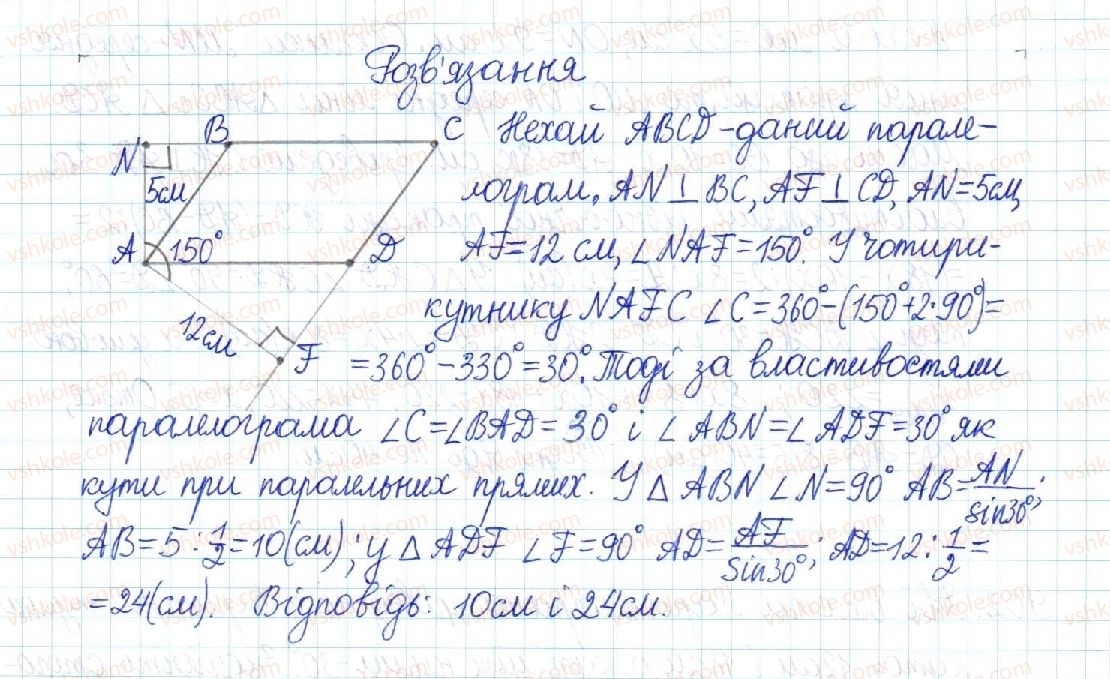 Розв'язання
N B C
5см
A 150° D
12см
F
Нехай ABCD-даний парале-
лограм, AN⊥BC, AF⊥CD, AN=5см,
AF=12 см, ∠NAF=150°. У чотири-
кутнику NAFC ∠C=360°-(150°+2·90°)=
=360°-330°=30°. Тоді за властивостями
паралелограма ∠C=∠BAD=30° і ∠ABN=∠ADF=30° як
кути при паралельних прямих. У △ABN ∠N=90° AB=AN/sin30°;
AB=5:1/2=10(см); у △ADF ∠F=90° AD=AF/Sin30°; AD=12:1/2=
=24(см). Відповідь: 10см і 24см.
vshkole.com